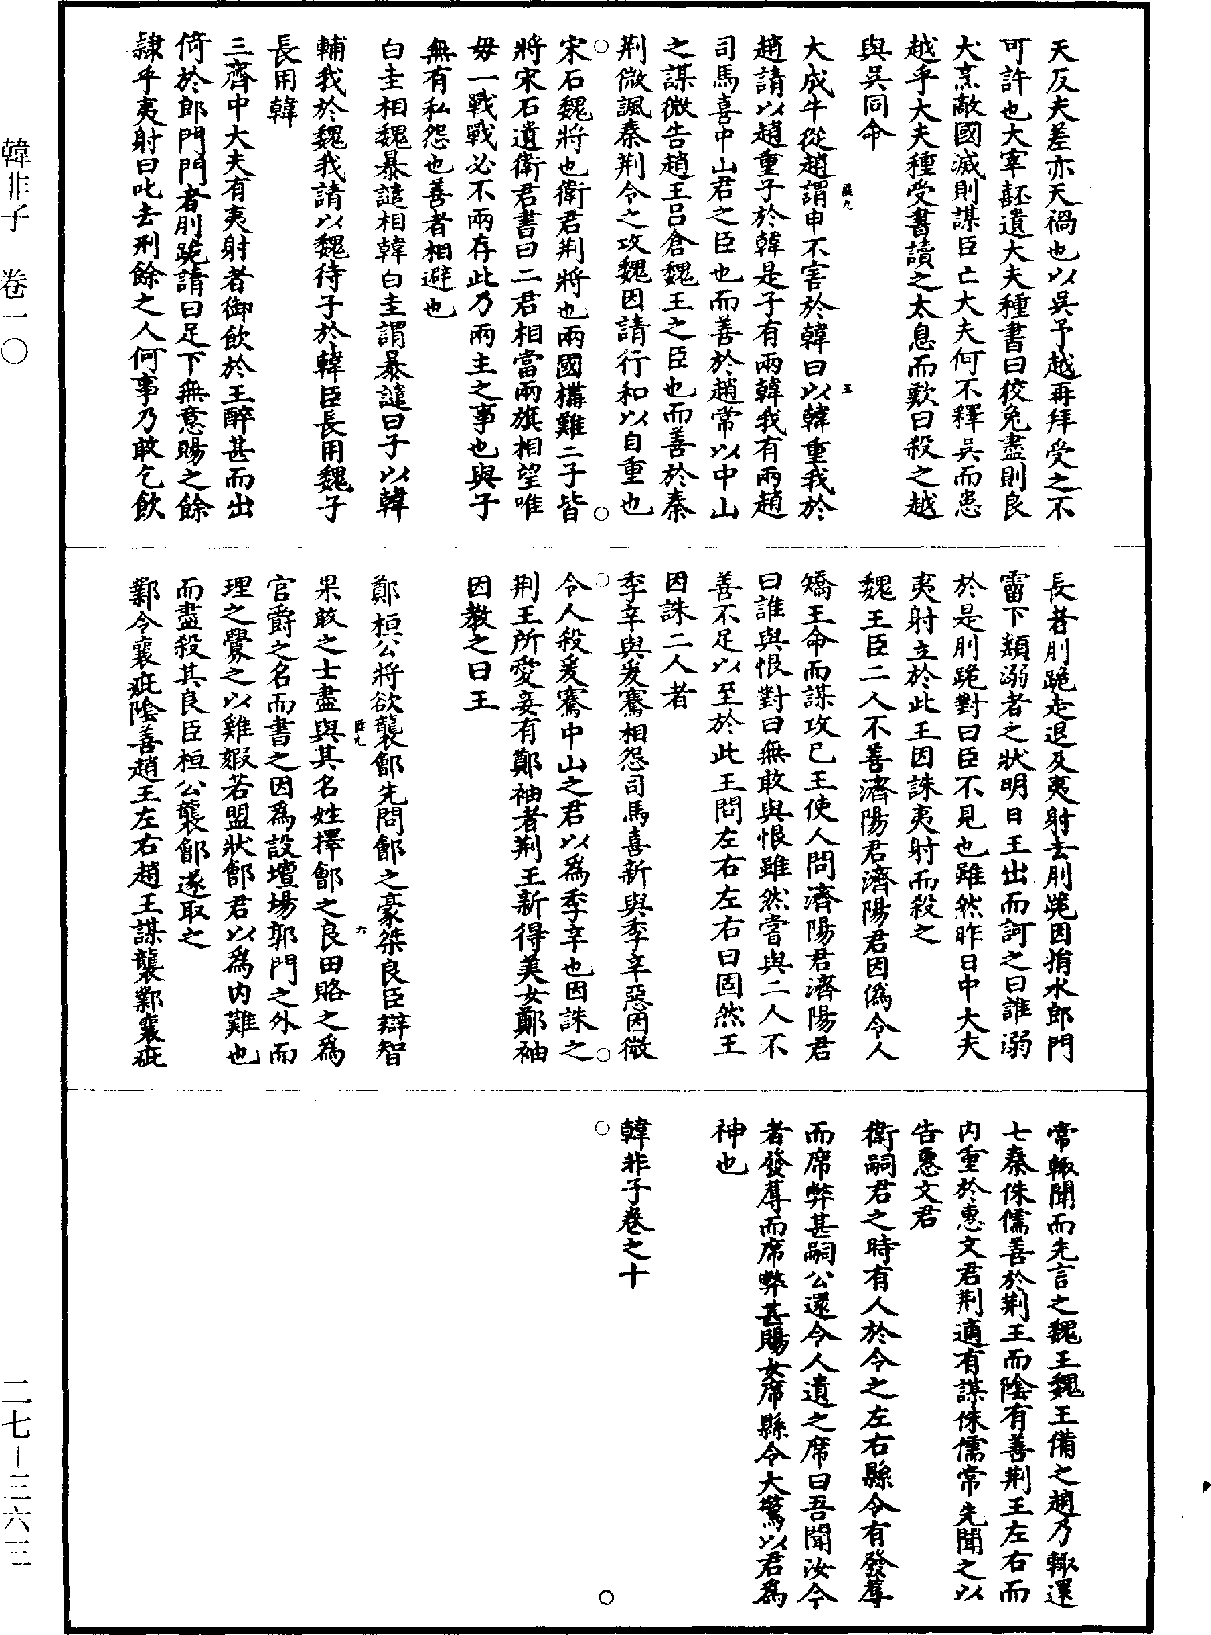 天反夫差亦天禍也以吳予越再拜受之不
可許也大宰嚭遺大夫種書曰狡兔盡則良
犬烹敵國滅則謀臣亡大夫何不釋吳而患
越乎大夫種受書讀之太息而歎曰殺之越
與吳同命
大成牛從趙謂申不害於韓曰以韓重我於
趙請以趙重子於韓是子有兩韓我有兩趙
司馬喜中山君之臣也而善於趙常以中山
之謀微告趙王呂倉魏王之臣也而善於秦
荆微諷秦荆令之攻魏因請行和以自重也
宋石魏將也衛君荆將也兩國構難二子皆
將宋石遺衛君書曰二君相當兩旗相望唯
毋一戰戰必不兩存此乃兩主之事也與子
無有私怨也善者相避也
白圭相魏暴譴相韓白圭謂暴譴曰子以韓
輔我於魏我請以魏待子於韓臣長用魏子
長用韓
三齊中大夫有夷射者御飲於王醉甚而出
倚於郎門門者刖跪請曰足下無意賜之餘
隷乎夷射曰叱去刑餘之人何事乃敢乞飲
長者刖跪走退及夷射去刖跪因捐水郎門
霤下類溺者之狀明日王出而訶之曰誰溺
於是刖跪對曰臣不見也雖然昨日中大夫
夷射立於此王因誅夷射而殺之
魏王臣二人不善濟陽君濟陽君因僞令人
矯王命而謀攻已王使人問濟陽君濟陽君
曰誰與恨對曰無敢與恨雖然嘗與二人不
善不足以至於此王問左右左右曰固然王
因誅二人者
季辛與爰騫相怨司馬喜新與季辛惡因微
令人殺爰騫中山之君以為季辛也因誅之
荆王所愛妾有鄭袖者荆王新得美女鄭袖
因教之曰王
鄭桓公將欲襲鄶先問鄶之豪桀良臣辯智
果敢之士盡與其名姓擇鄶之良田賂之為
官爵之名而書之因為設壇場郭門之外而
理之釁之以雞猳若盟狀鄶君以為内難也
而盡殺其良臣桓公襲鄶遂取之
鄴令襄疵陰善趙王左右趙王謀襲鄴襄疵
常輙聞而先言之魏王魏王備之趙乃輙還
七秦侏儒善於荆王而陰有善荆王左右而
内重於惠文君荆適有謀侏儒常先聞之以
告惠文君
衛嗣君之時有人於令之左右縣令有發蓐
而席弊甚嗣公還令人遺之席曰吾聞汝今
者發蓐而席弊甚賜女席縣令大驚以君為
神也
韓非子卷之十
韓非子　卷一〇
二七－三六三